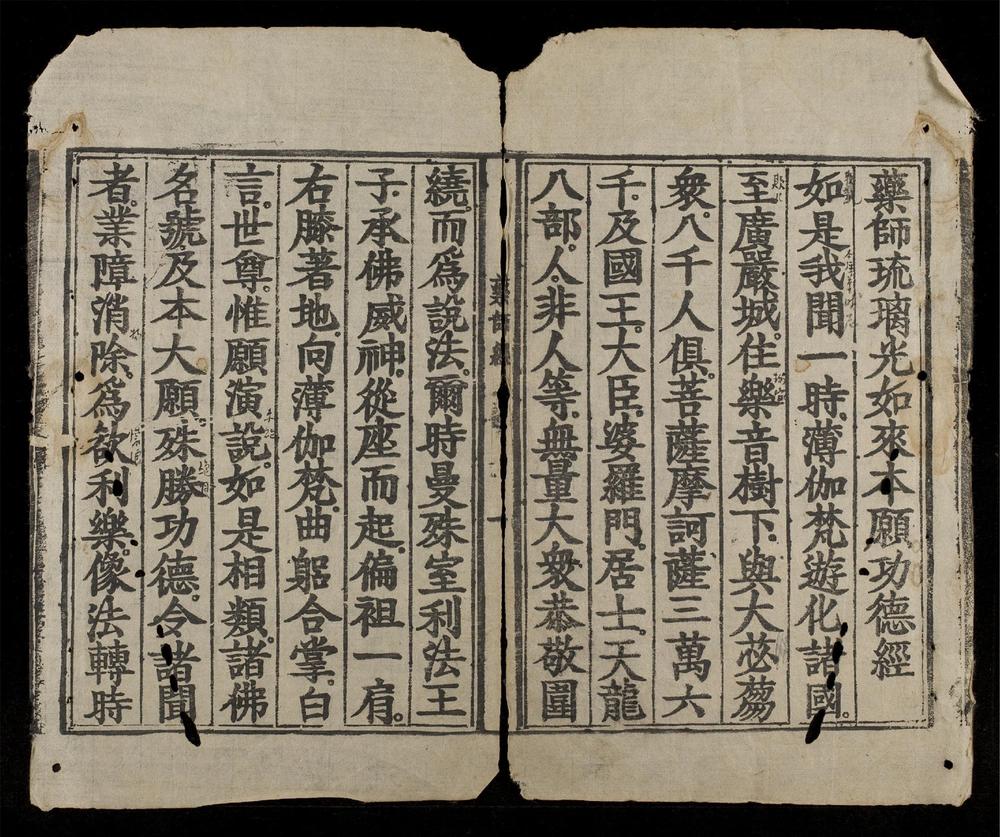 藥師琉璃光如來本願功德經
如是我聞一時。薄伽梵遊化諸國。
至廣嚴城。住樂音樹下。與大苾蒭
衆。八千人俱。菩薩摩訶薩三萬六
千。及國王。大臣。婆羅門。居士。天龍
八部。人。非人等。無量大衆。恭敬圍
藥師經
一
繞。而爲說法。爾時曼殊室利法王
子。承佛威神。從座而起。偏袒一肩。
右膝著地。向薄伽梵。曲躬合掌。白
言。世尊。惟願演說。如是相類。諸佛
名號。及本大願。殊勝功德。令諸聞
者。業障消除。爲欲利樂。像法轉時